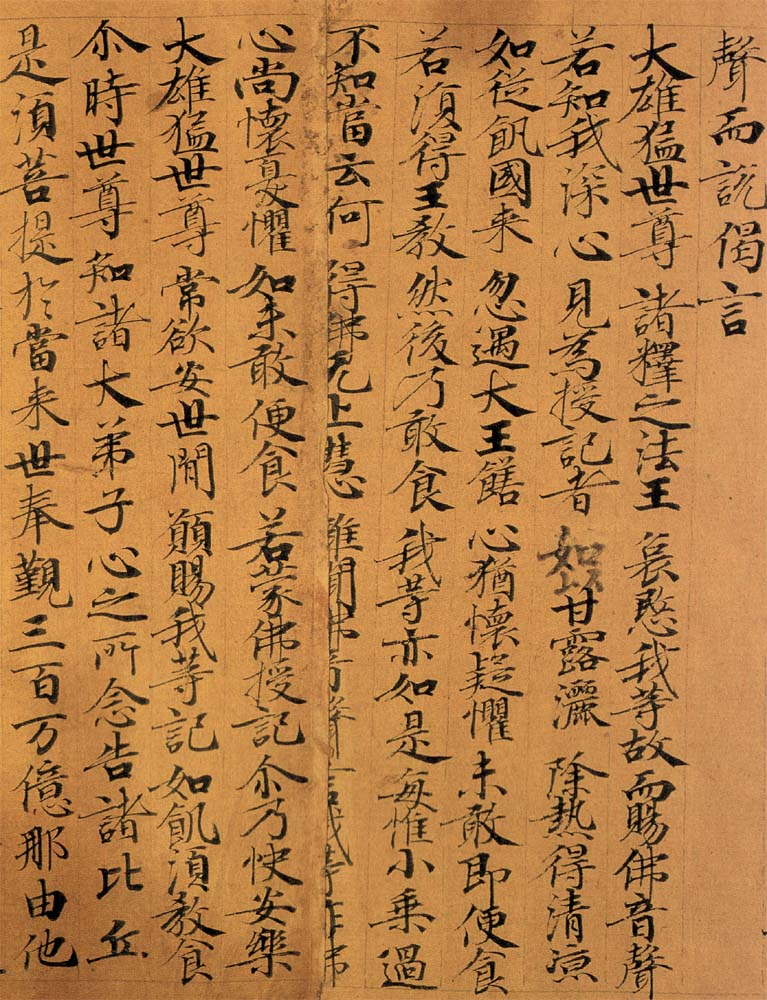 聲而説偈言
大雄猛世尊 諸釋之法王 哀愍我等故而賜佛音聲
若知我深心 見為授記者 如以甘露灑 除熱得清涼
如従飢國来 忽遇大王饍 心猶懷疑懼 未敢即便食
若湏得王教 然後乃敢食 我等亦如是 每惟小乗過
不知當云何 得佛无上慧 雖聞佛音聲 言我等作佛
心尚懷憂懼 如未敢便食 若蒙佛授記 尒乃快安樂
大雄猛世尊 常欲安世間 願賜我等記 如飢湏教食
尒時世尊知諸大弟子心之所念告諸比丘
是湏菩提於當来世奉觐三百万億那由他